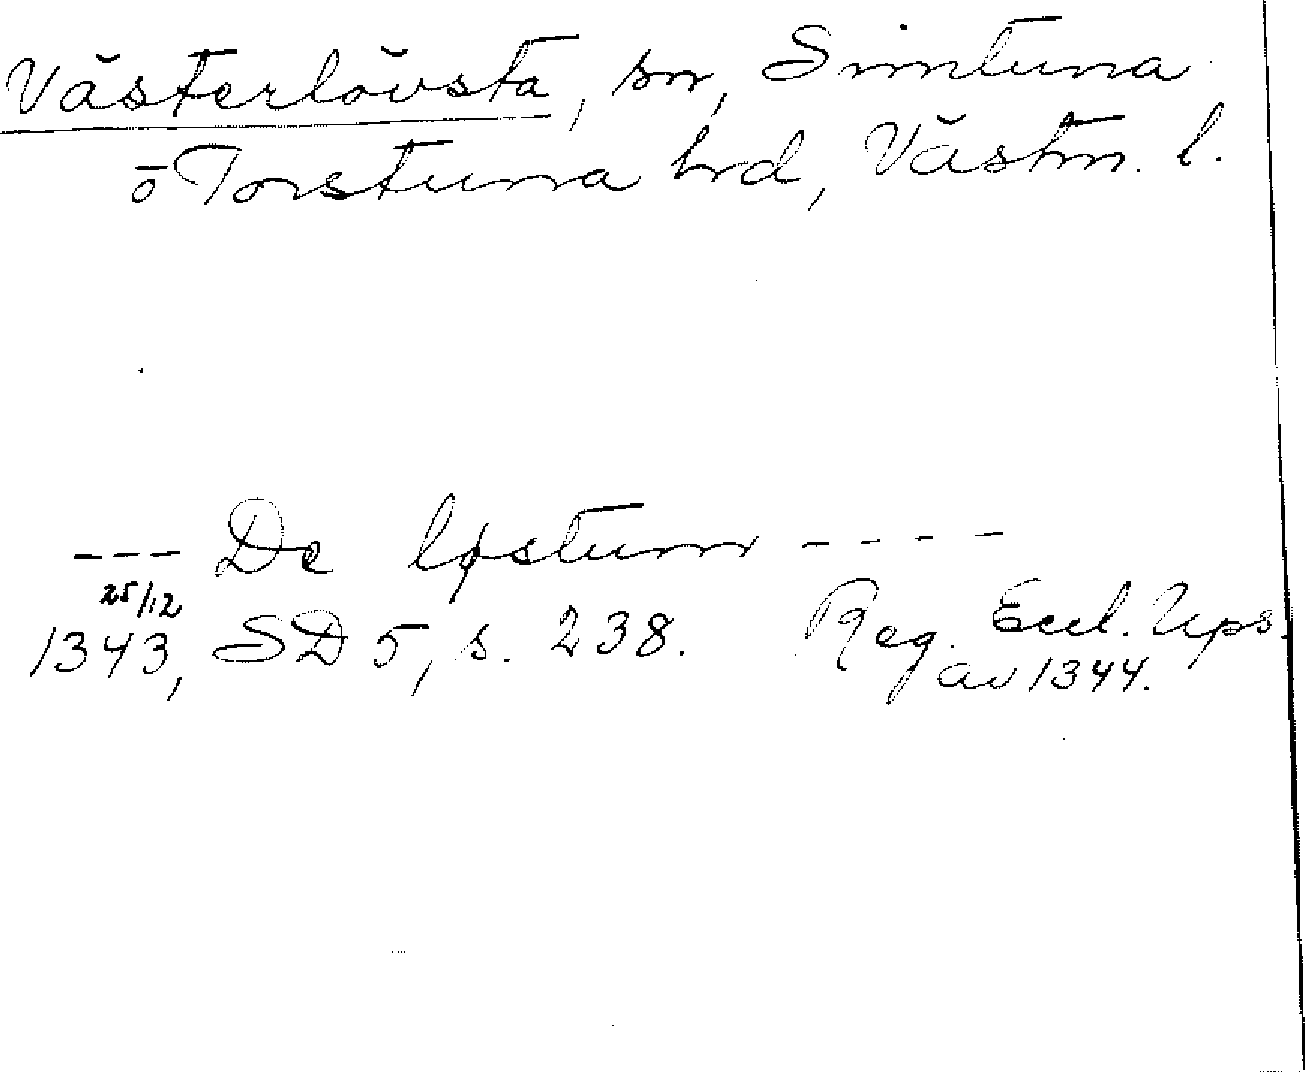 Västerlövsta, sn, Simtuna
o Torstuna hrd, Västm. l.
--- De løstum ----
25/12
1343, SD 5, s. 238. Reg. Eccl. Ups.
av 1344.